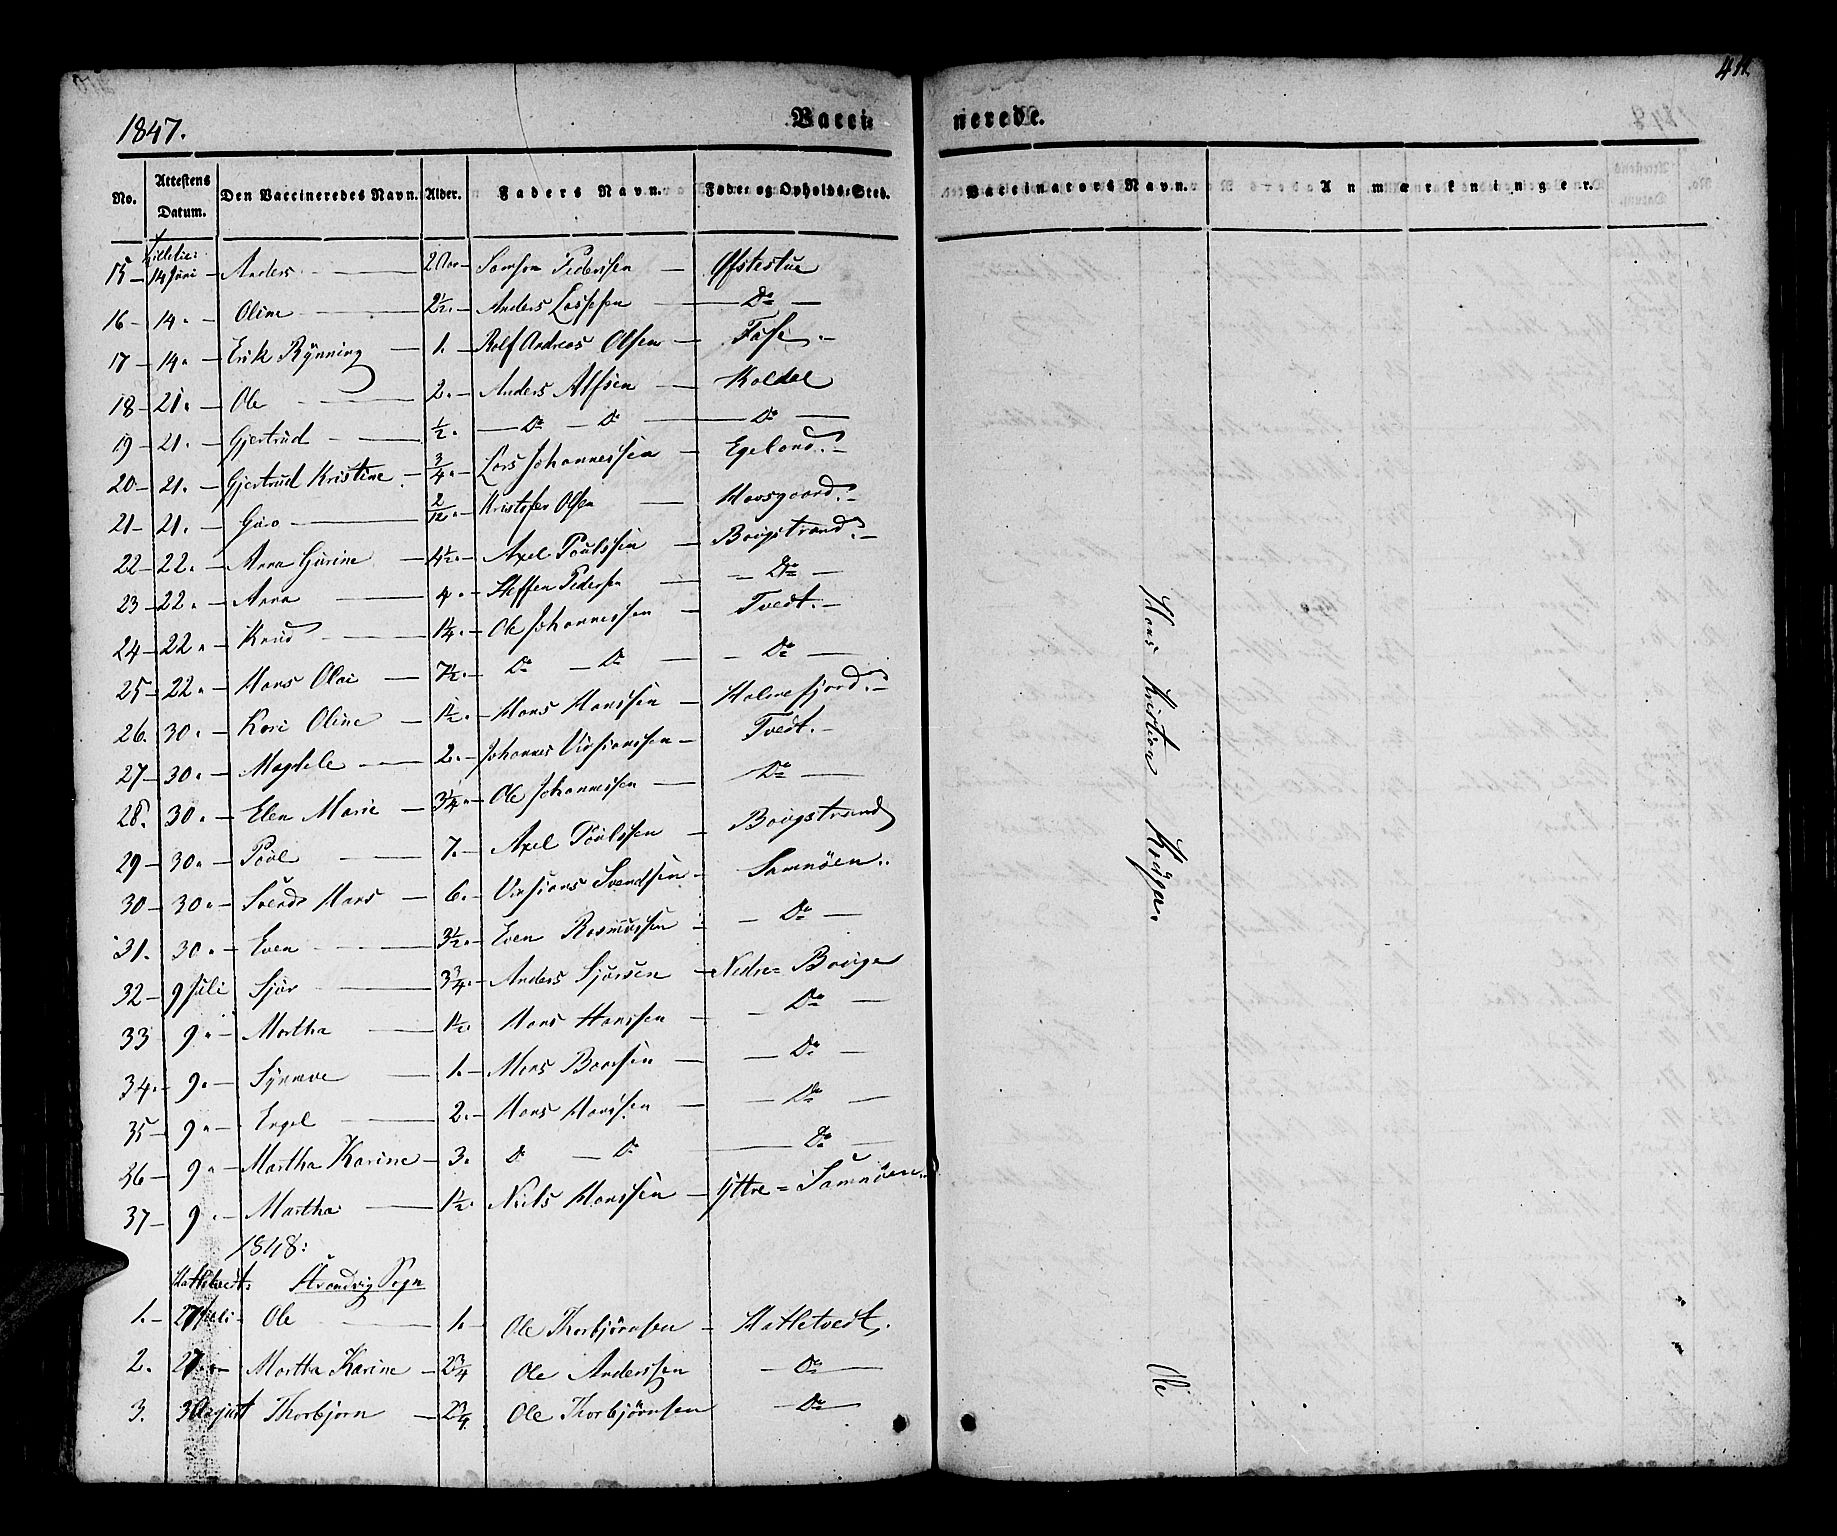 411
1847.
Vacci
nerede.
No. Attestens Datum. Den Vaccineredes Navn. Alder. Faders Navn. Føde- og Opholds-Sted. Vaccinators Navn. Anmærkninger.
15 14 Juni Anders 2 Aar Samson Pedersen Øfstestue
16 14 Oline 2½ Anders Do
17 14 Erik Rynning 1. Rolf Andreas Olsen
18 21. Ole 2. Anders Alfsen Koldal
19 21. Gjertrud ½. Do Do Do
20 21. Gjertrud Kristine ¾. Lars Johannessen Egeland.
21 21. Guro 2/12. Kristofer Olsen Havsgaard.
22 22. Anna Gurine 4½. Axel Poulssen Bougstrand.
23 22. Anna 4. Steffen Pedersen Do
24 22. Knud 1¼. Ole Johannessen Tvedt.
25 22. Hans Olai 7½. Do Do Do
26. 30. Kari Oline 1½. Hans Hanssen Holmefjord.
27 30. Magdele 2. Johannes Vivsianssen Tvedt.
28. 30. Elen Marie 3¼. Ole Johannessen Do
29 30. Poul 7. Axel Poulssen Bougstrand
30 30. Svend Hans 6. Vivsians Svendsen Samnøen.
31. 30. Even 3½. Even Rasmussen Do
32 9 Juli Sjur 3¾. Anders Sjursen Nedre Bouge
33 9. Martha 1½. Hans Hanssen Do
34. 9. Synneve 1. Mons Baarsen Do
35 9. Engel 2. Hans Hanssen Do
36 9. Martha Karine 3. Do Do Do
37 9. Martha 1½. Niels Hanssen Yttre Samnøen.
1848:
Hatletvedt: Strandvig Sogn
1. 27 Juli Ole 1. Ole Thorbjørnsen Hatletvedt.
2. 27. Martha Karine 2¾ Ole Anderssen Do
3. 3 August Thorbjørn 2¾ Ole Thorbjørnsen Do
Hans Kristian Kouga.
Ole